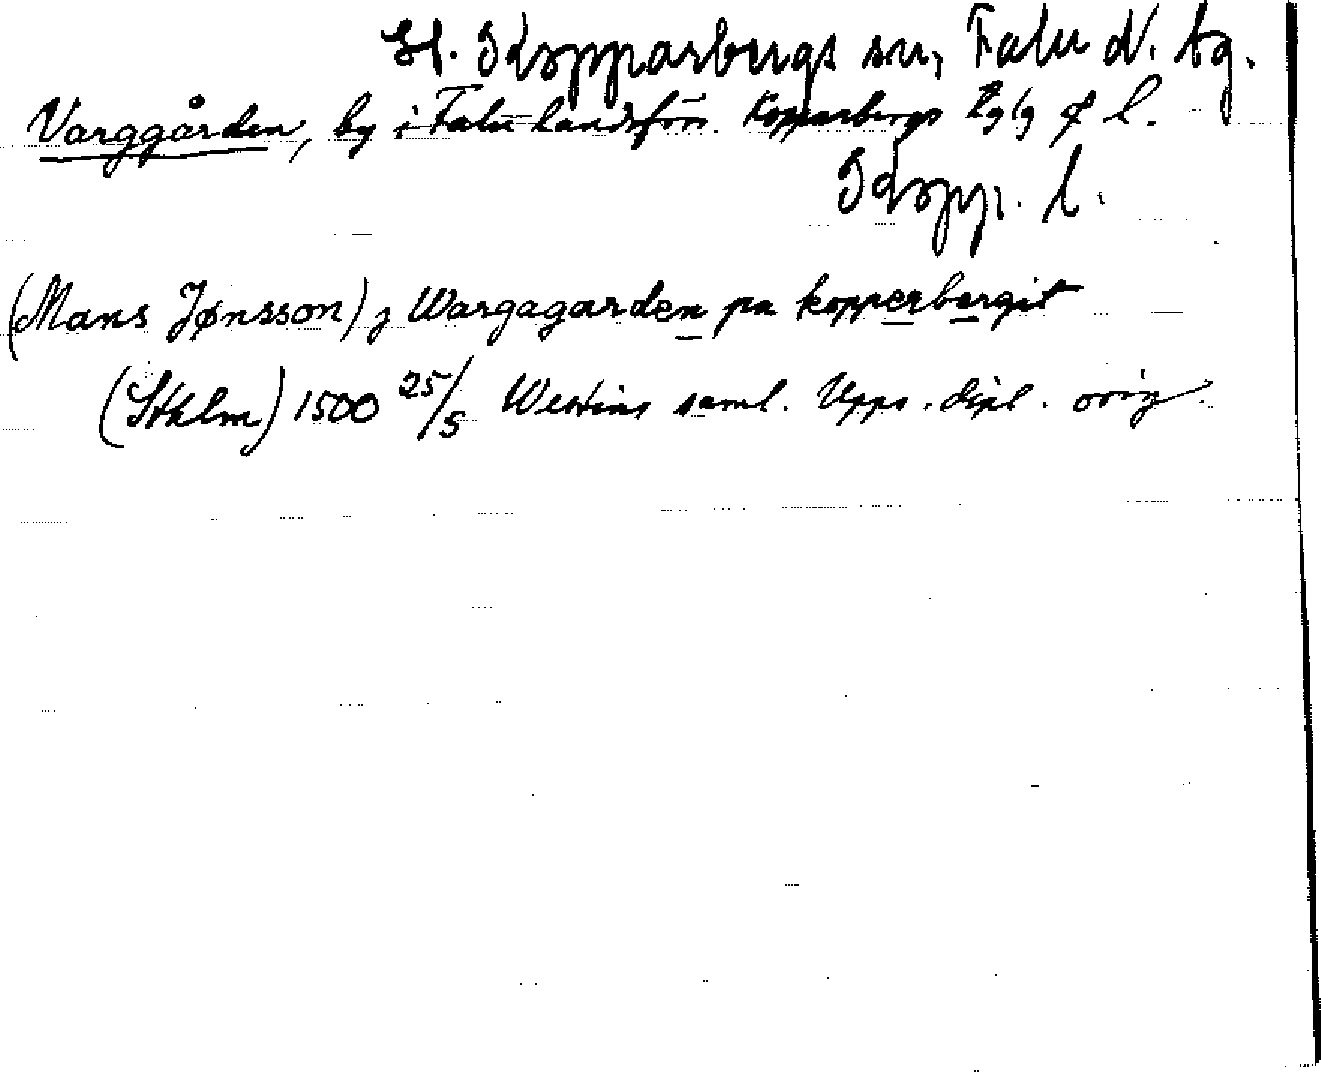 St. Kopparbergs sn, Falu N. tg.
Varggården, by i Falu landsförs. Kopparbergs o l.
Kopp. l.
(Mans Jønsson) j Wargagarden pa kopperbergit
(Sthlm) 1500 25/5 Westins saml. Upps. dipl. orig.